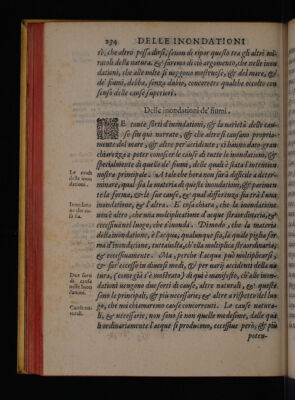 234 DELLE INONDATIONI
rò, che altro possa dirsi, senon di ripor questo tra gli altri mi-
racoli della natura. & saremo di ciò argomento, che nelle inon
dationi, che alle volte si veggono mostruose, & del mare, &
de' fiumi, debba, senza dubio, concorrere qualche occolto con
senso delle cause superiori.
Delle inondationi de' fiumi.
LE tante sorti d'inondationi, & la varietà delle cau-
se sin qui narrate, & che altre si causano propria-
mente dal mare, & altre per accidente; ci hanno dato gran
chiarezza a poter conoscer le cause di tutte le inondationi, &
specialmente di quelle de' fiumi, delle quali è stata l'intention
nostra principale. A tale che hora non sarà difficile a deter-
minare, qual sia la materia di questa inondatione, & parimen
te la forma, & le sue cause, & qual differenza sia trà l'una
inondatione, & l'altra. E cosa chiara, che la inondatione
non è altro, che una moltiplicatione d'acque straordinaria, &
eccessiva nel luogo, che s'inonda. Dimodo, che la materia
della inondatione, è l'acqua, qualunque sia, la quale piglia for
ma d'inondatione, tuttavolta, ch'ella moltiplica straordinaria,
& eccessivamente. Ma, perche l'acqua può moltiplicarsi,
& far eccesso in diversi modi, & per varij accidenti della na-
tura, (come già s'è mostrato) di quì è manifesto, ch'alle inon-
dationi vengono due sorti di cause, altre naturali, & queste
sono le principali, & più necessarie; & altre a rispetto del luo
go, che noi chiameremo cause concorrenti. Le cause natura-
li, & necessarie, non sono se non quelle medesime, dalle qua
li ordinariamente l'acque si producono, eccessive però, & più
poten-
La
della inon
dationi.
Inondatio
ne che co-
sa sia.
Due sorti
di cause
nelle inon
dationi.
Cause na-
turali.